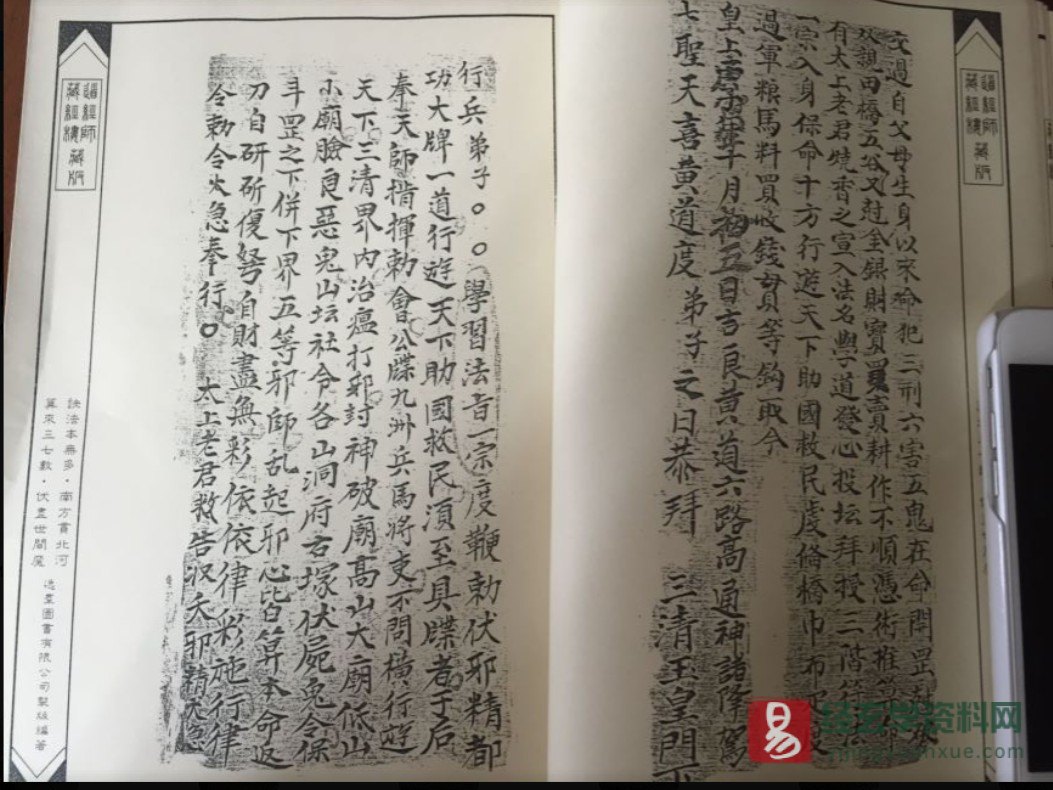 交過自父母生身以來命犯三刑六害五鬼在命閗罡
双親田橋五谷又尅金銀財寶買賣耕作不順憑術推算
有太上老君燒香之宣入法名與子道發心投坛拜授三階符
一宗入身保命十方行遊天下助國救民度脩橋巾布
過軍粮馬料買收錢毋貝等鈎取今
皇上 十月初五日吉良黄道六路高通神諸降駕
七聖天喜黄道度弟子之日恭拜 三清玉皇門下
行兵弟子○○學習法旨一宗度鞭勅伏邪精都
功大牌一道行遊天下助國救民須至具牒者于后
奉天師指揮勅會公牒九洲兵馬將吏不問横行遊
天下三清界内治瘟打邪封神破廟高山大廟低山
小廟臉良惡鬼山坛社令各山洞府右塚伏屍鬼令保
斗罡之下併下界五等邪師乱起邪心皆算本命返
刀自研斫復弩自財盡無彩依依律彩施行律
令勅令火急奉行○ 太上老君敕告収夭邪精
道經師
藏經樓藏版
道經師
藏經樓藏版
訣法本無多·南方貫北河
算來三七數·伏盡世間魔
逸群圖書有限公司製版編著
易
易玄学资料网